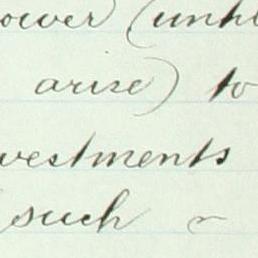 power (until
arise) to
vestments
such